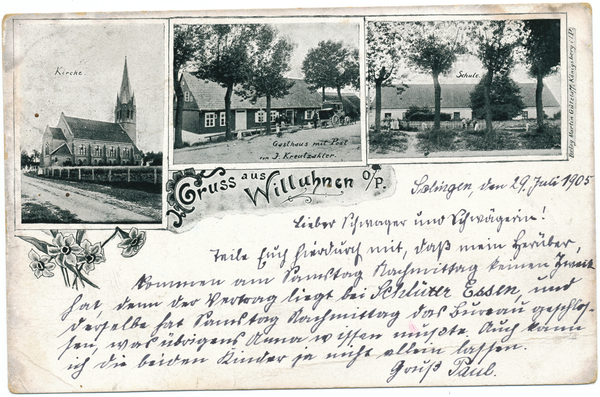 Kirche
Gasthaus mit Post
von J. Kreutzahler.
Schule.
Verlag Martin Gützlaff, Königsberg i/P.
Gruss aus Willuhnen O/P.
Solingen, den 29. Juli 1905
Lieber Schwager und Schwägerin!
Teile Euch hierdurch mit, daß mein herüber,
kommen am Samstag Nachmittag keinen Zweck
hat, denn der Vertrag liegt bei Schlüter Essen, und
derselbe hat Samstag Nachmittag das Büreau geschlos-
sen, was übrigens Anna wissen mußte. Auch kann
ich die beiden Kinder ja nicht allein lassen.
Gruß Paul.